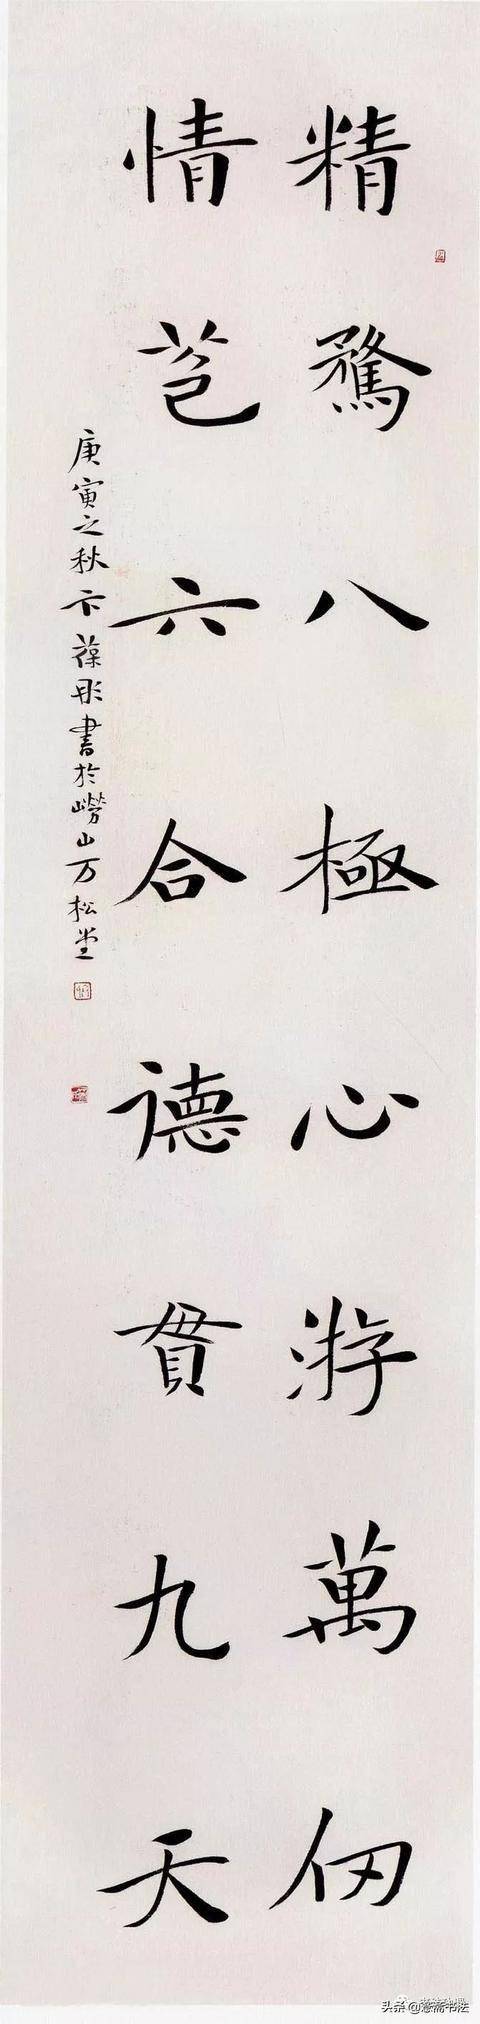 精骛八極心游萬仞
情苞六合德貫九天
庚寅之秋卞葆彤書於嶗山万松堂
头条@慧斋书法